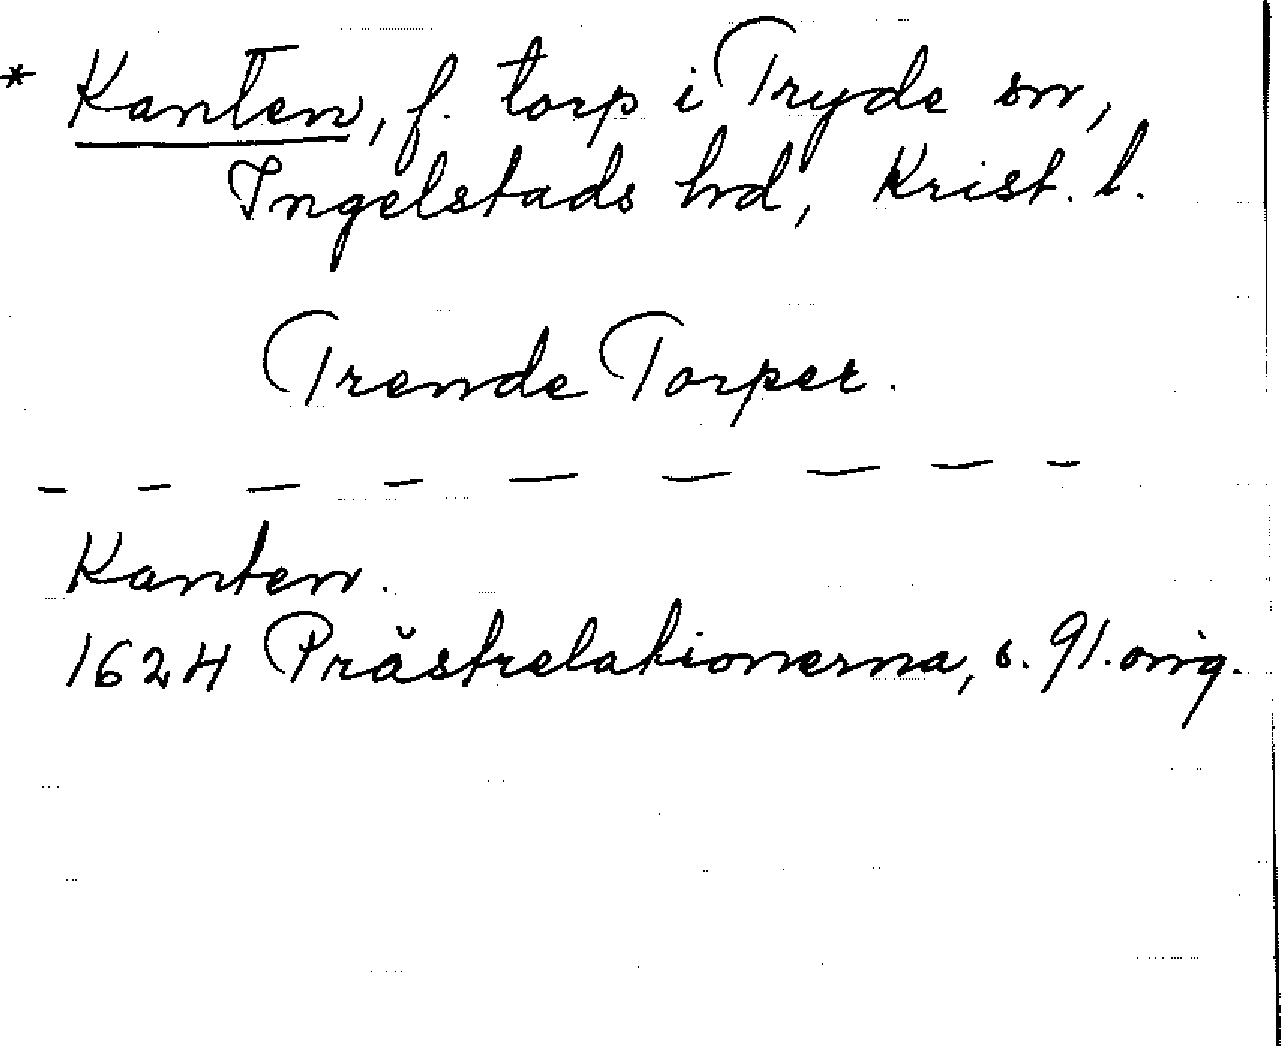 * Kanten, f. torp i Tryde sn,
Ingelstads hd, Krist. l.
Trende Torper.
Kanten.
1624 Prästrelationerna, s. 91. orig.